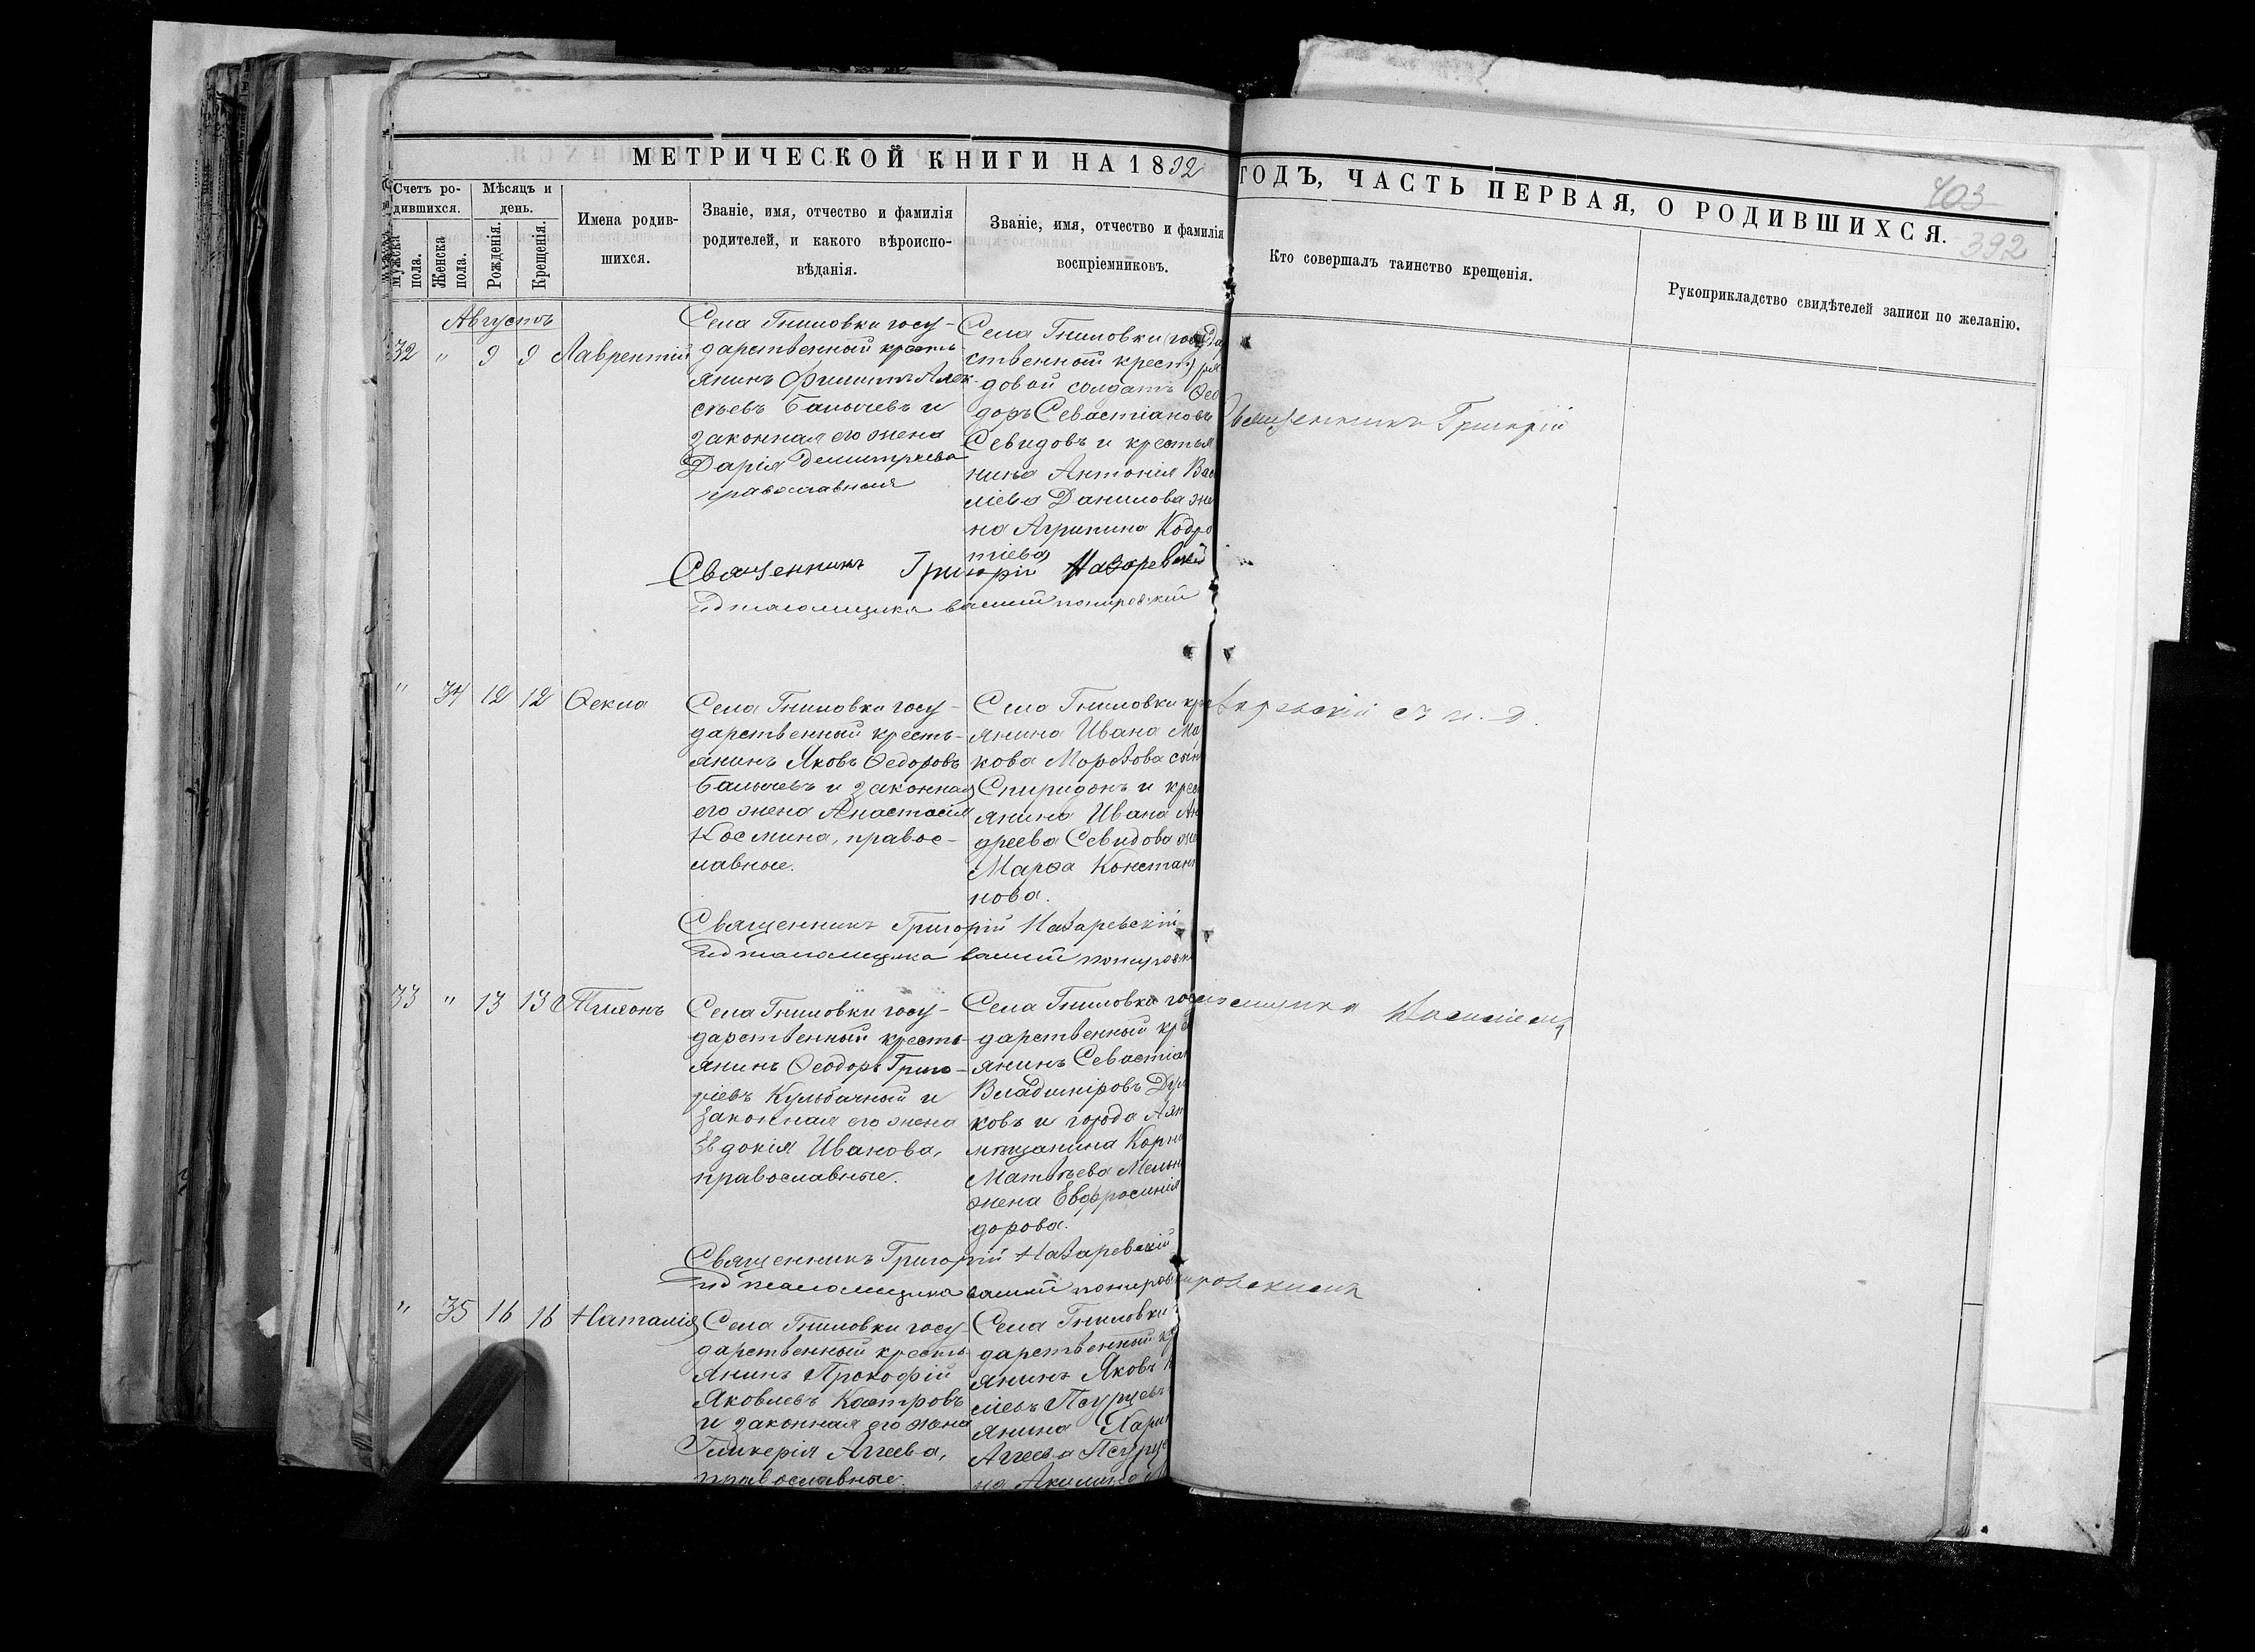 МЕТРИЧЕСКОЙ КНИГИ НА 1892
ГОДЪ, ЧАСТЬ ПЕРВАЯ, О РОДИВШИХСЯ.
403
392
Счетъ ро-
дившихся.
Мужска
пола.
Женска
пола.
Мѣсяцъ и
день.
Рожденія.
Крещенія.
Имена родив-
шихся.
Званіе, имя, отчество и фамилія
родителей, и какого вѣроиспо-
вѣданія.
Званіе, имя, отчество и фамилія
воспріемниковъ.
Кто совершалъ таинство крещенія.
Рукоприкладство свидѣтелей записи по желанію.
Августъ
32 " 9 9 Лаврентій
Села Гниловки госу-
дарственный кресть-
янинъ Филиппъ Алек-
сѣевъ Балычевъ и
законная его жена
Дарія Димитріева
православныя
Села Гниловки (госуда
ственный крест) ря
довой солдатъ Ѳео
доръ Севастіановъ
Севидовъ и крестья
нина Антонія Васи
ліева Данилова же
на Агрипина Кодра
тіева
Священникъ Григорій Назаревскій
" 34 12 12 Ѳекла
Села Гниловки госу-
дарственный кресть-
янинъ Яковъ Ѳедоровъ
Балычевъ и законная
его жена Анастасія
Космина, правос-
лавные.
Села Гниловки кре
янина Ивана Ма
кова Морозова сын
Спиридонъ и крес
янина Ивана Ан
дреева Севидова же
Марѳа Констант
нова.
Священникъ Григорій Назаревскій
33 " 13 13 Тихонъ
Села Гниловки госу-
дарственный кресть-
янинъ Ѳеодоръ Григо-
ріевъ Кульбачный и
законная его жена
Евдокія Иванова,
православные.
Села Гниловки госу
дарственный кре
янинъ Севастіан
Владиміровъ Дул
ковъ и города
мѣщанина Корни
Матвѣева Мельн
жена Евфросинія
дорова.
Священникъ Григорій Назаревскій
" 35 16 16 Наталія
Села Гниловки госу-
дарственный кресть-
янинъ Прокофій
Яковлевъ Костровъ
и законная его жена
Гликерія Аггеева,
православные.
Села Гниловки
дарственный кр
янинъ Яковъ
сіевъ Псурцевъ
янина Харит
Аггеева Псурце
на Акилина
Священникъ Григорій